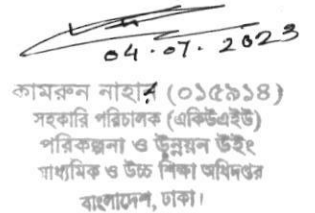 04.07.2023
কামরুন নাহার (০১৫৯১৪)
সহকারি পরিচালক (একিউএইউ)
পরিকল্পনা ও উন্নয়ন উইং
মাধ্যমিক ও উচ্চ শিক্ষা অধিদপ্তর
বাংলাদেশ, ঢাকা।